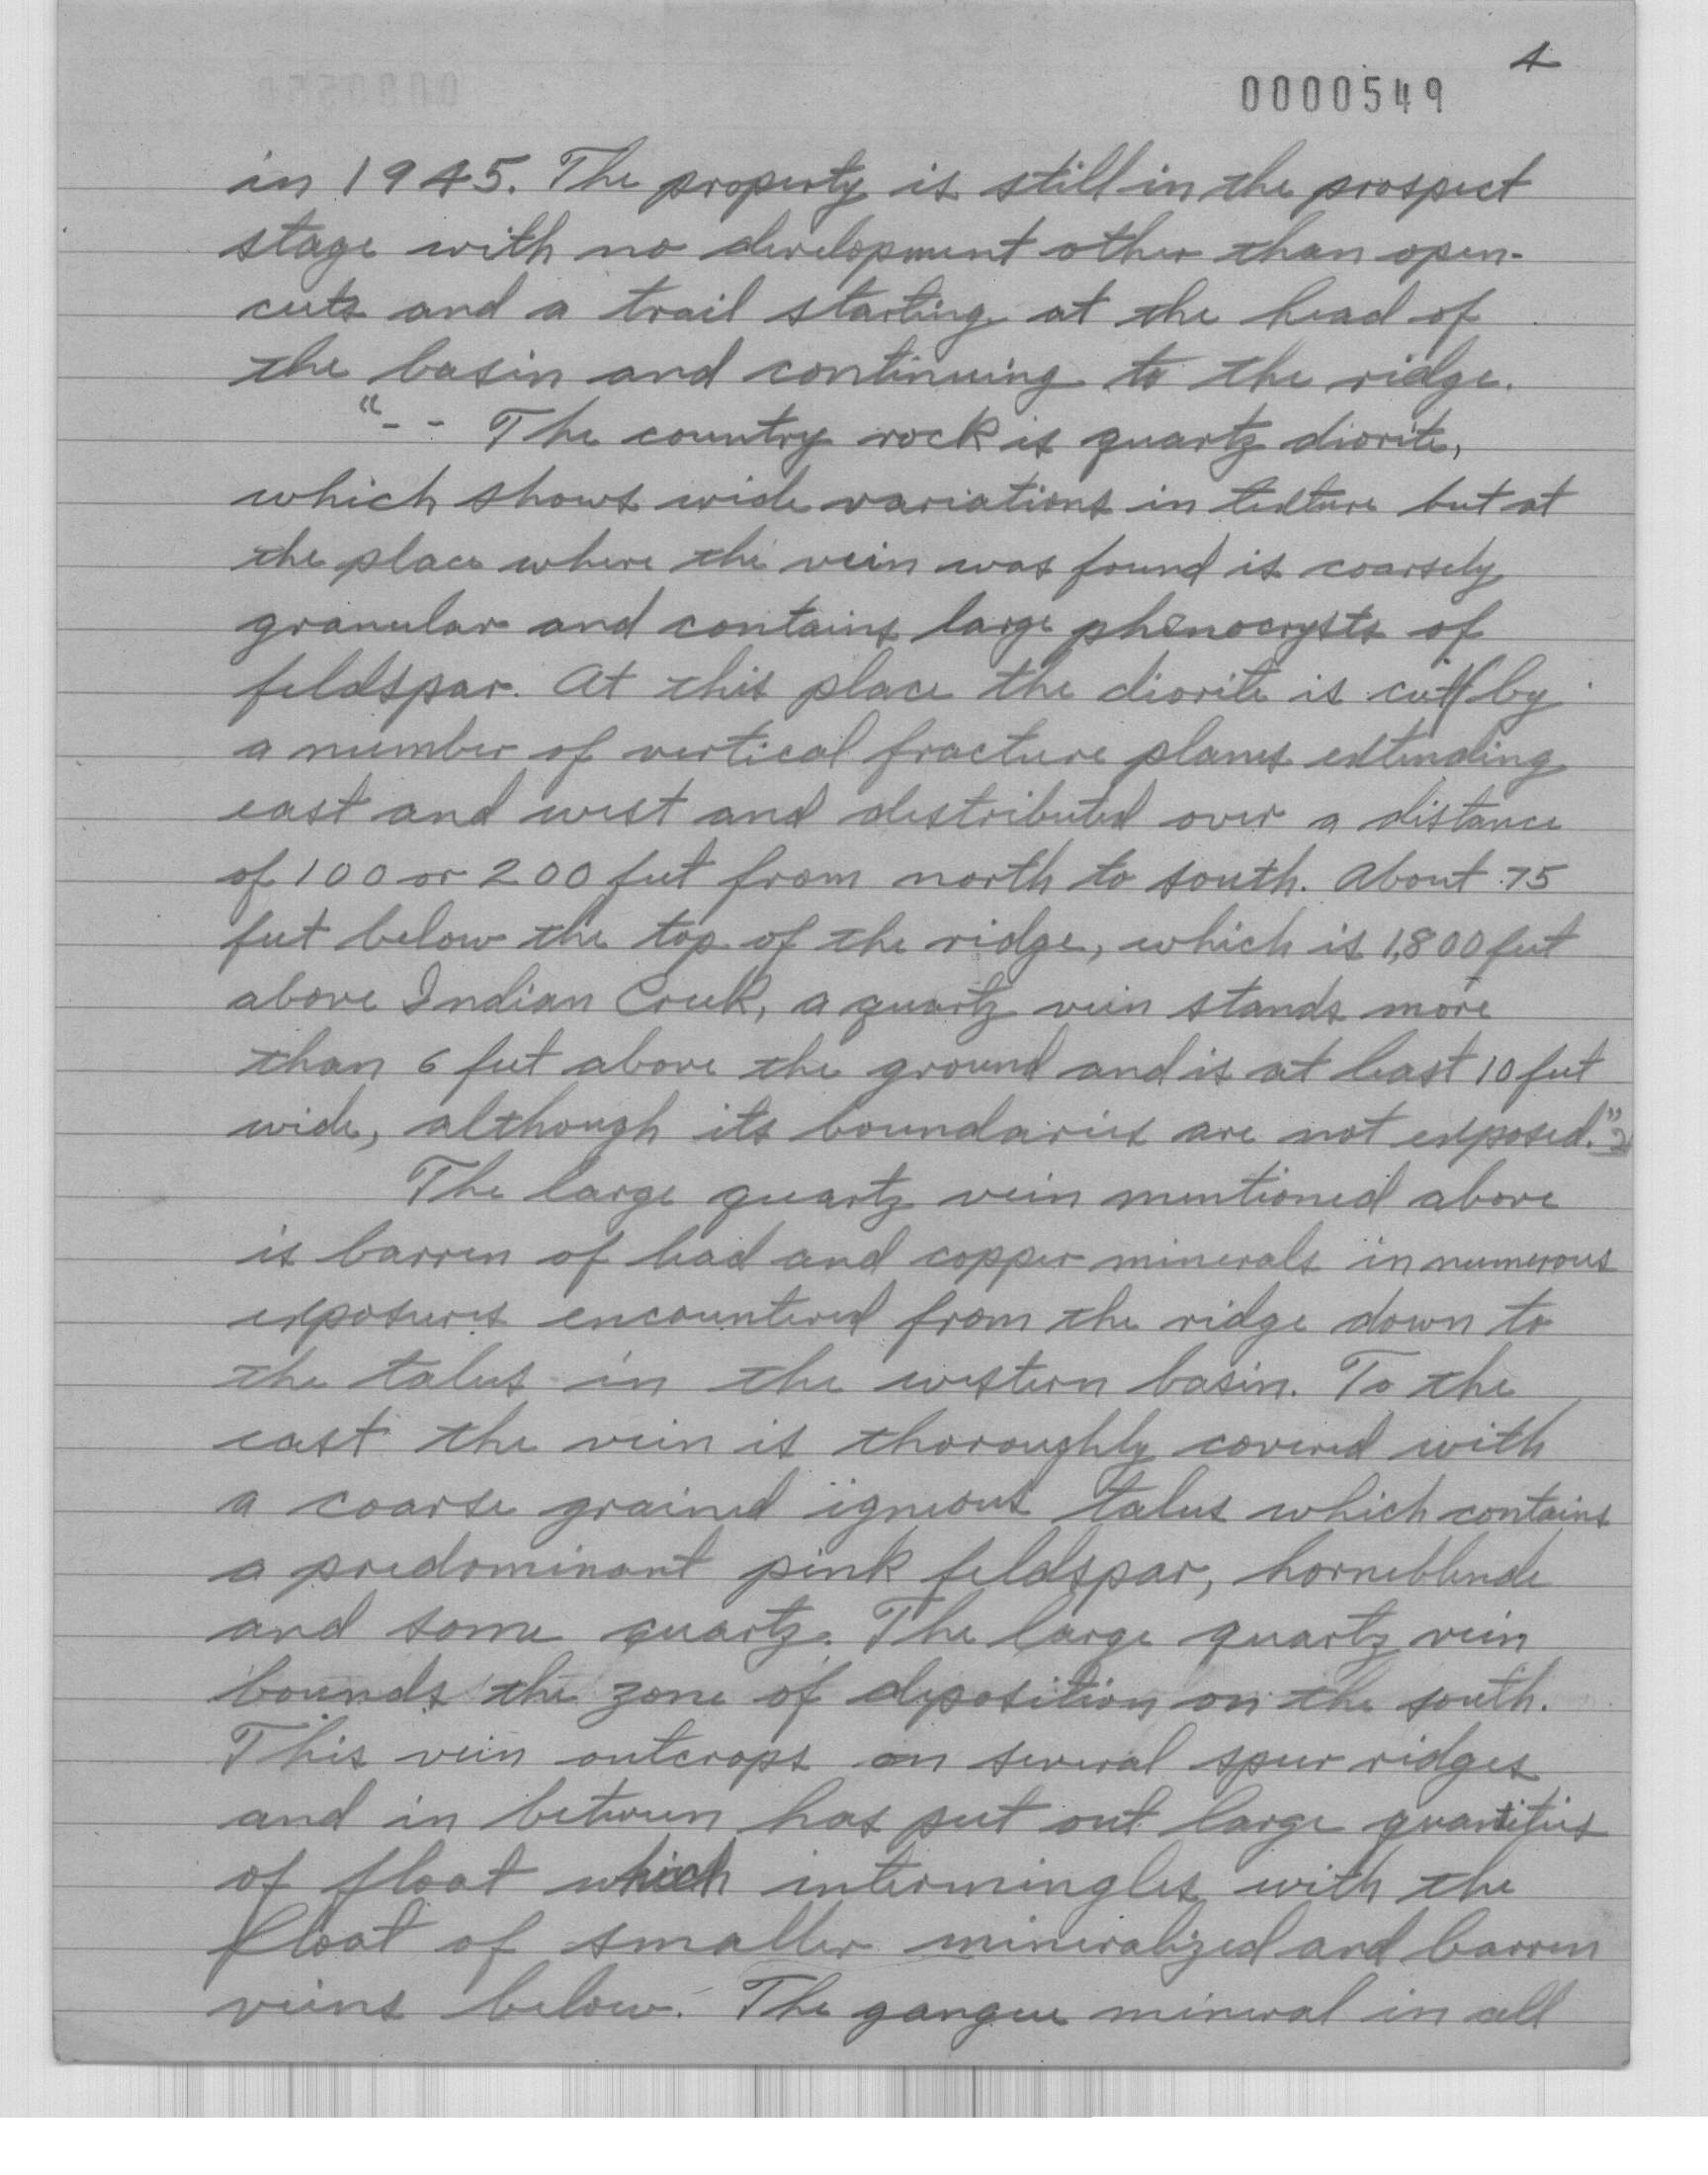 4
0000549
in 1945. The property is still in the prospect
stage with no development other than open-
cuts and a trail starting at the head of
the basin and continuing to the ridge.
"-- The country rock is quartz diorite,
which shows wide variations in texture but at
the place where the vein was found is coarsely
granular and contains large phenocrysts of
feldspar. At this place the diorite is cut by
a number of vertical fracture planes extending
east and west and distributed over a distance
of 100 or 200 feet from north to south. About 75
feet below the top of the ridge, which is 1,800 feet
above Indian Creek, a quartz vein stands more
than 6 feet above the ground and is at least 10 feet
wide, although its boundaries are not exposed."2
The large quartz vein mentioned above
is barren of lead and copper minerals in numerous
exposures encountered from the ridge down to
the talus in the western basin. To the
east the vein is thoroughly covered with
a coarse grained igneous talus which contains
a predominant pink feldspar, horneblende
and some quartz. The large quartz vein
bounds the zone of deposition on the south.
This vein outcrops on several spur ridges
and in between has put out large quantities
of float which intermingles with the
float of smaller mineralized and barren
veins below. The gangue mineral in all